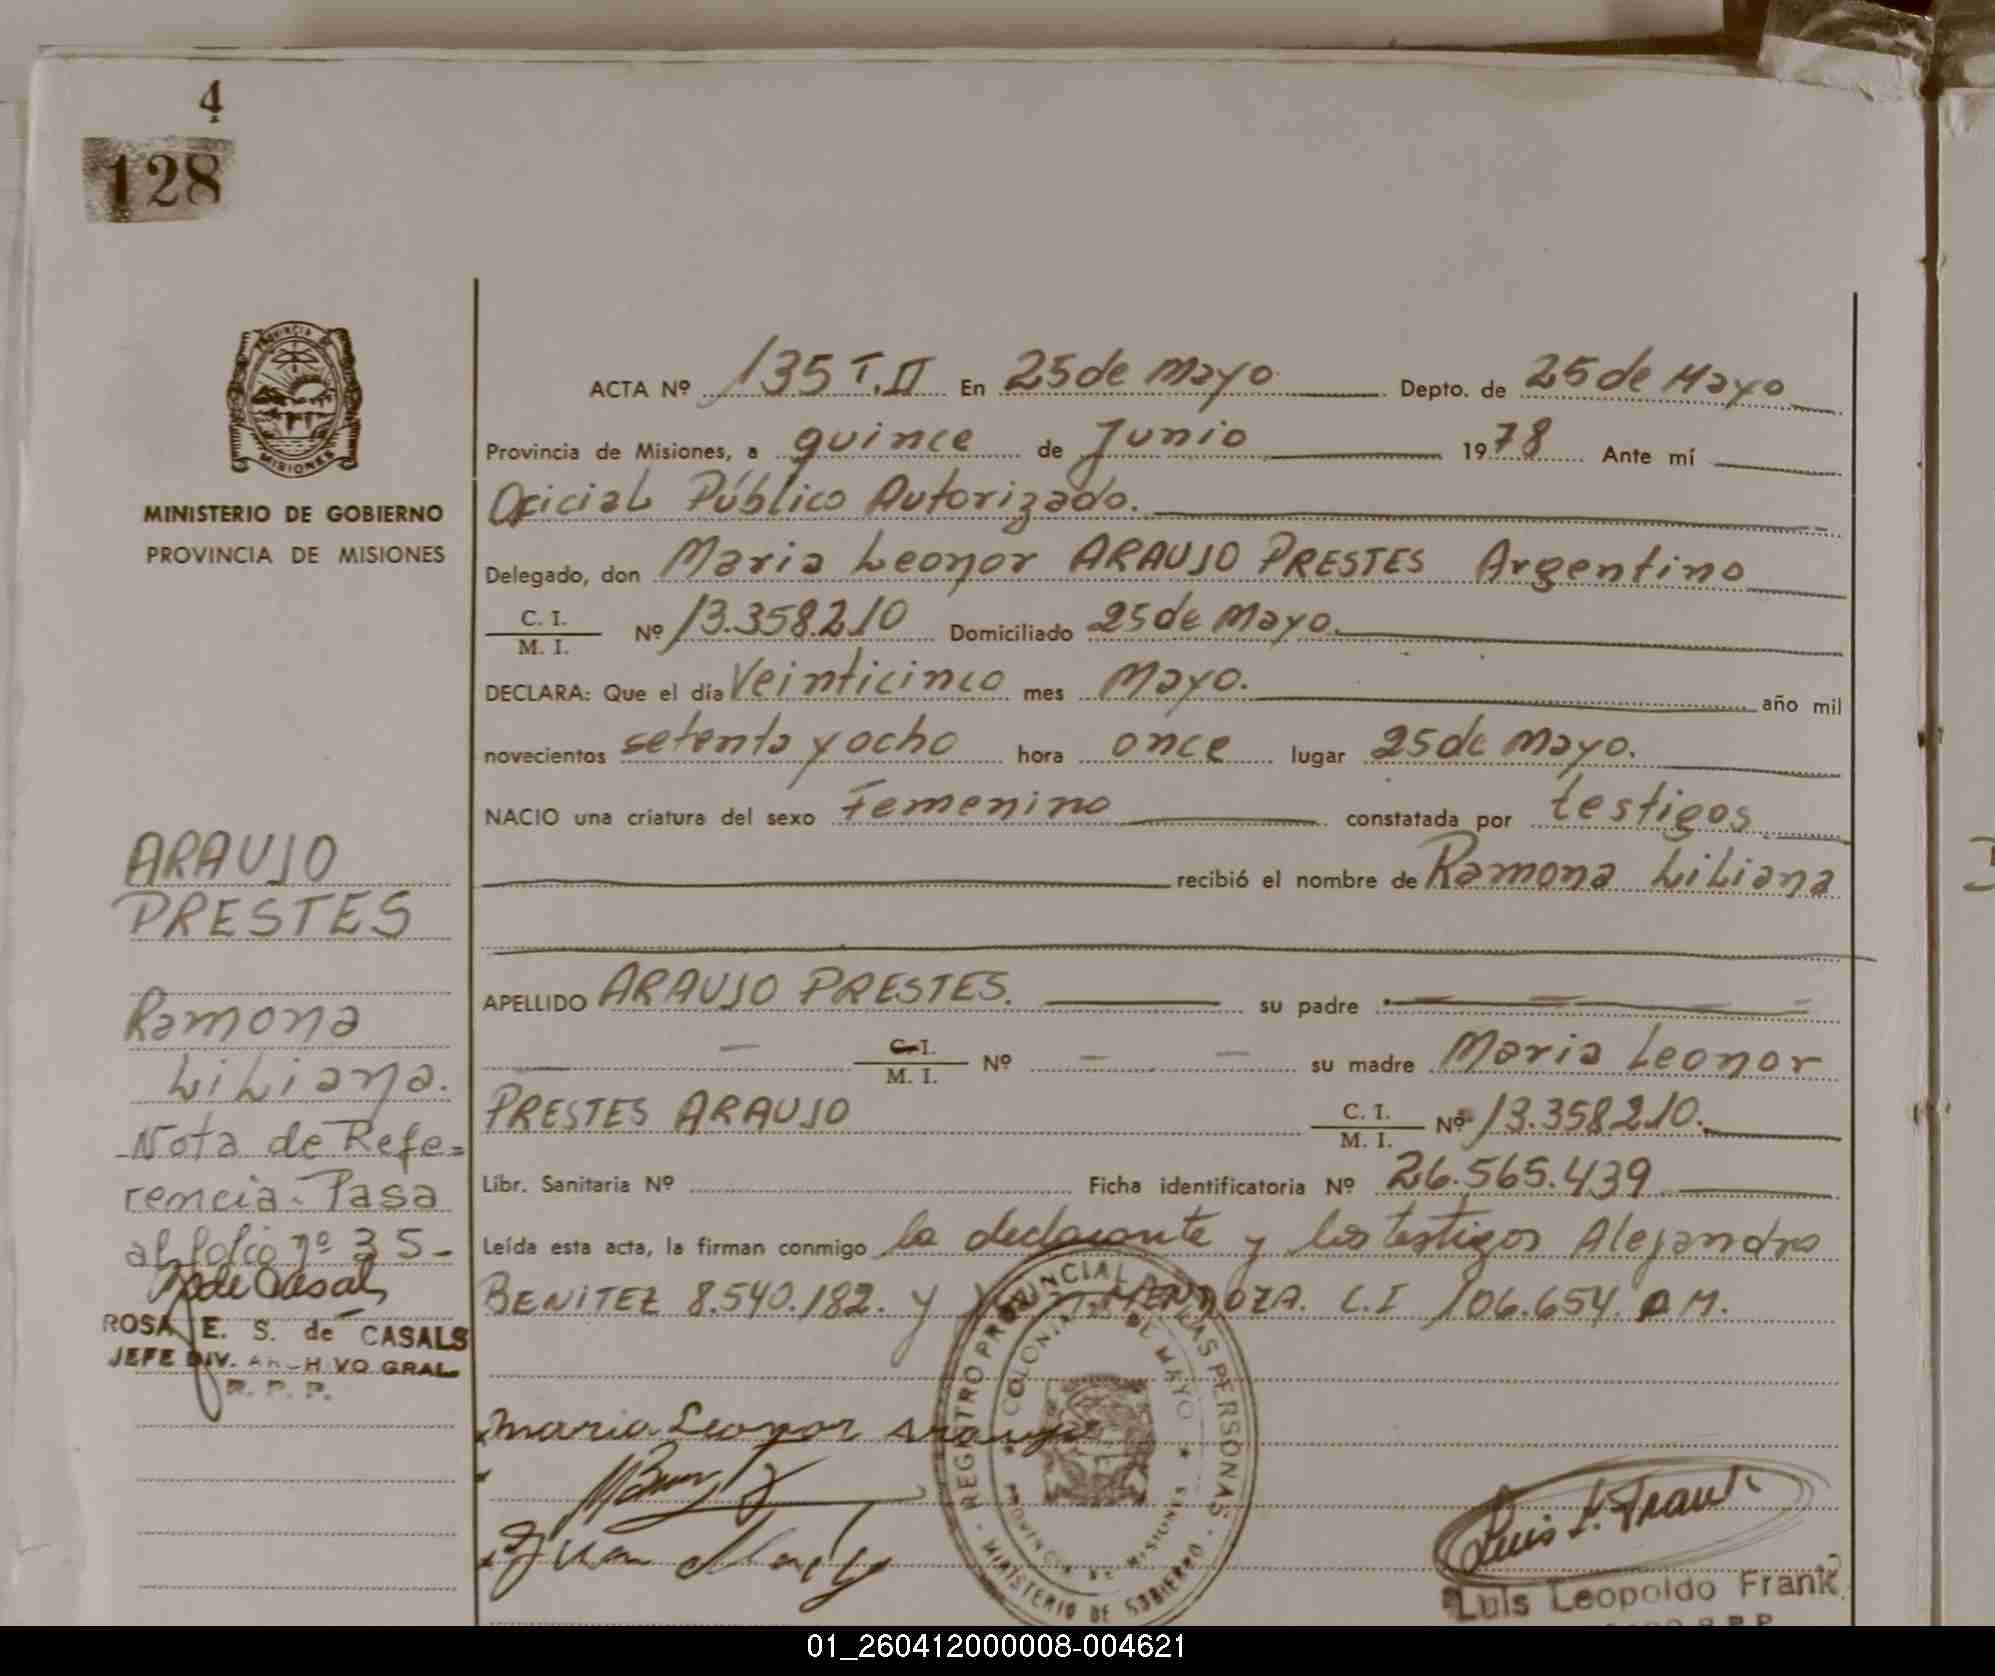 4
128
PROVINCIA DE
MISIONES
MINISTERIO DE GOBIERNO
PROVINCIA DE MISIONES
ARAUJO
PRESTES
Ramona
Liliana.
Nota de Refe=
rencia. Pasa
al folio nº 35-
ROSA E. S. de CASALS
JEFE DIV. ARCHIVO GRAL.
R. P. P.
ACTA Nº 135 T.II En 25 de Mayo Depto. de 25 de Mayo
Provincia de Misiones, a quince de Junio 1978 Ante mí
Oficial Público Autorizado.
Delegado, don Maria Leonor ARAUJO PRESTES Argentino
C. I.
M. I. Nº 13.358.210 Domiciliado 25 de Mayo.
DECLARA: Que el día Veinticinco mes Mayo. año mil
novecientos setenta y ocho hora once lugar 25 de Mayo.
NACIO una criatura del sexo Femenino constatada por testigos
recibió el nombre de Ramona Liliana
APELLIDO ARAUJO PRESTES. su padre
C. I.
M. I. Nº su madre Maria Leonor
PRESTES ARAUJO C. I.
M. I. Nº 13.358.210.
Libr. Sanitaria Nº Ficha identificatoria Nº 26.565.439
Leída esta acta, la firman conmigo la declarante y los testigos Alejandro
BENITEZ 8.540.182. y MENDOZA. C.I 106.654. P M.
Maria Leonor Araujo
REGISTRO PROVINCIAL DE LAS PERSONAS
COLONIA 25 DE MAYO
PROVINCIA DE MISIONES
MINISTERIO DE GOBIERNO
Luis L. Frank
Luis Leopoldo Frank
01_260412000008-004621